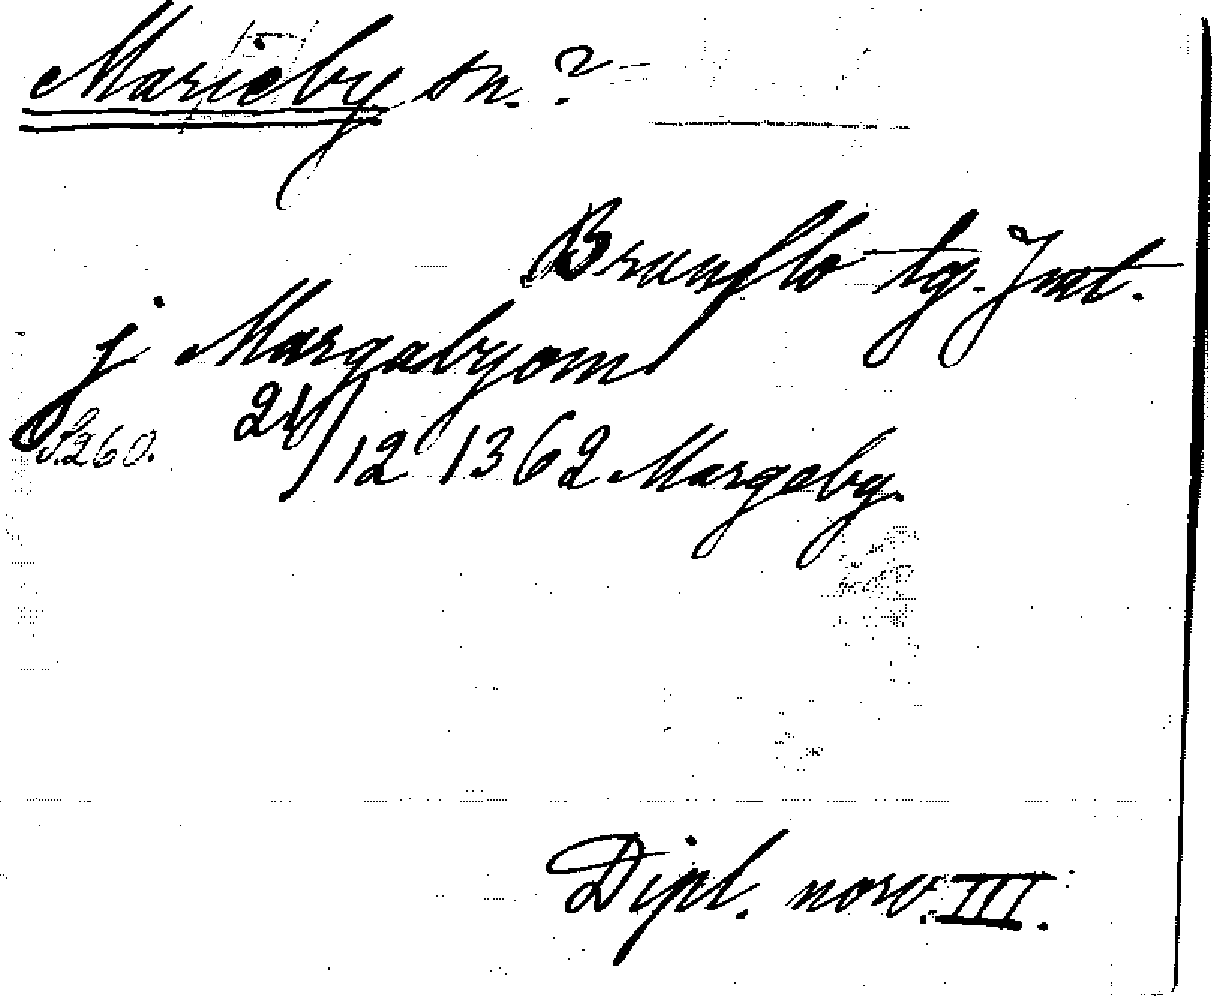 Marieby sn.?
Brunflo tg. Jmt.
j Margabyom
S. 260. 24/12 1362 Margaby.
Dipl. norv. III.